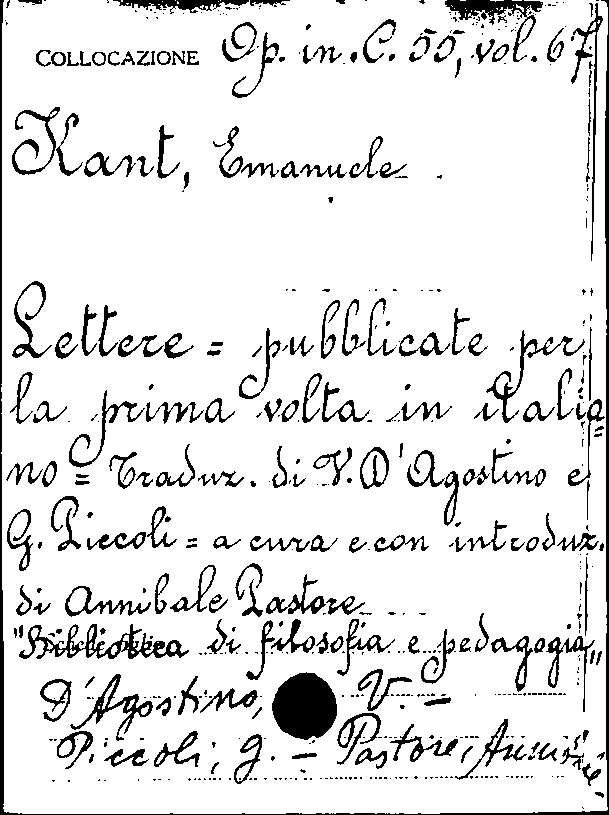 COLLOCAZIONE Op. in. C. 55, vol. 67
Kant, Emanuele
Lettere = pubblicate per
la prima volta in italia=
no = Traduz. di V. D'Agostino e
G. Piccoli = a cura e con introduz.
di Annibale Pastore
"Biblioteca di filosofia e pedagogia"
D'Agostino, V. -
Piccoli, G. - Pastore, Annibale.